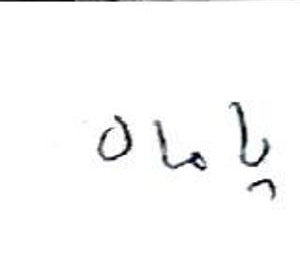 پامان